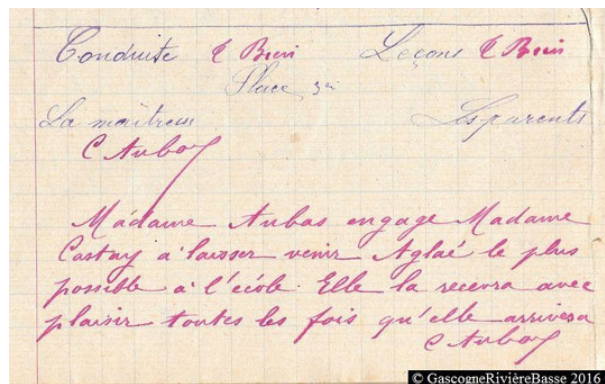 Conduite T Bien Leçons T Bien
Place 3e
La maîtresse Les parents
C Aubas
Madame Aubas engage Madame
Castay à laisser venir Aglaé le plus
possible à l'école. Elle la recevra avec
plaisir toutes les fois qu'elle arrivera
C Aubas
© GascogneRivièreBasse 2016